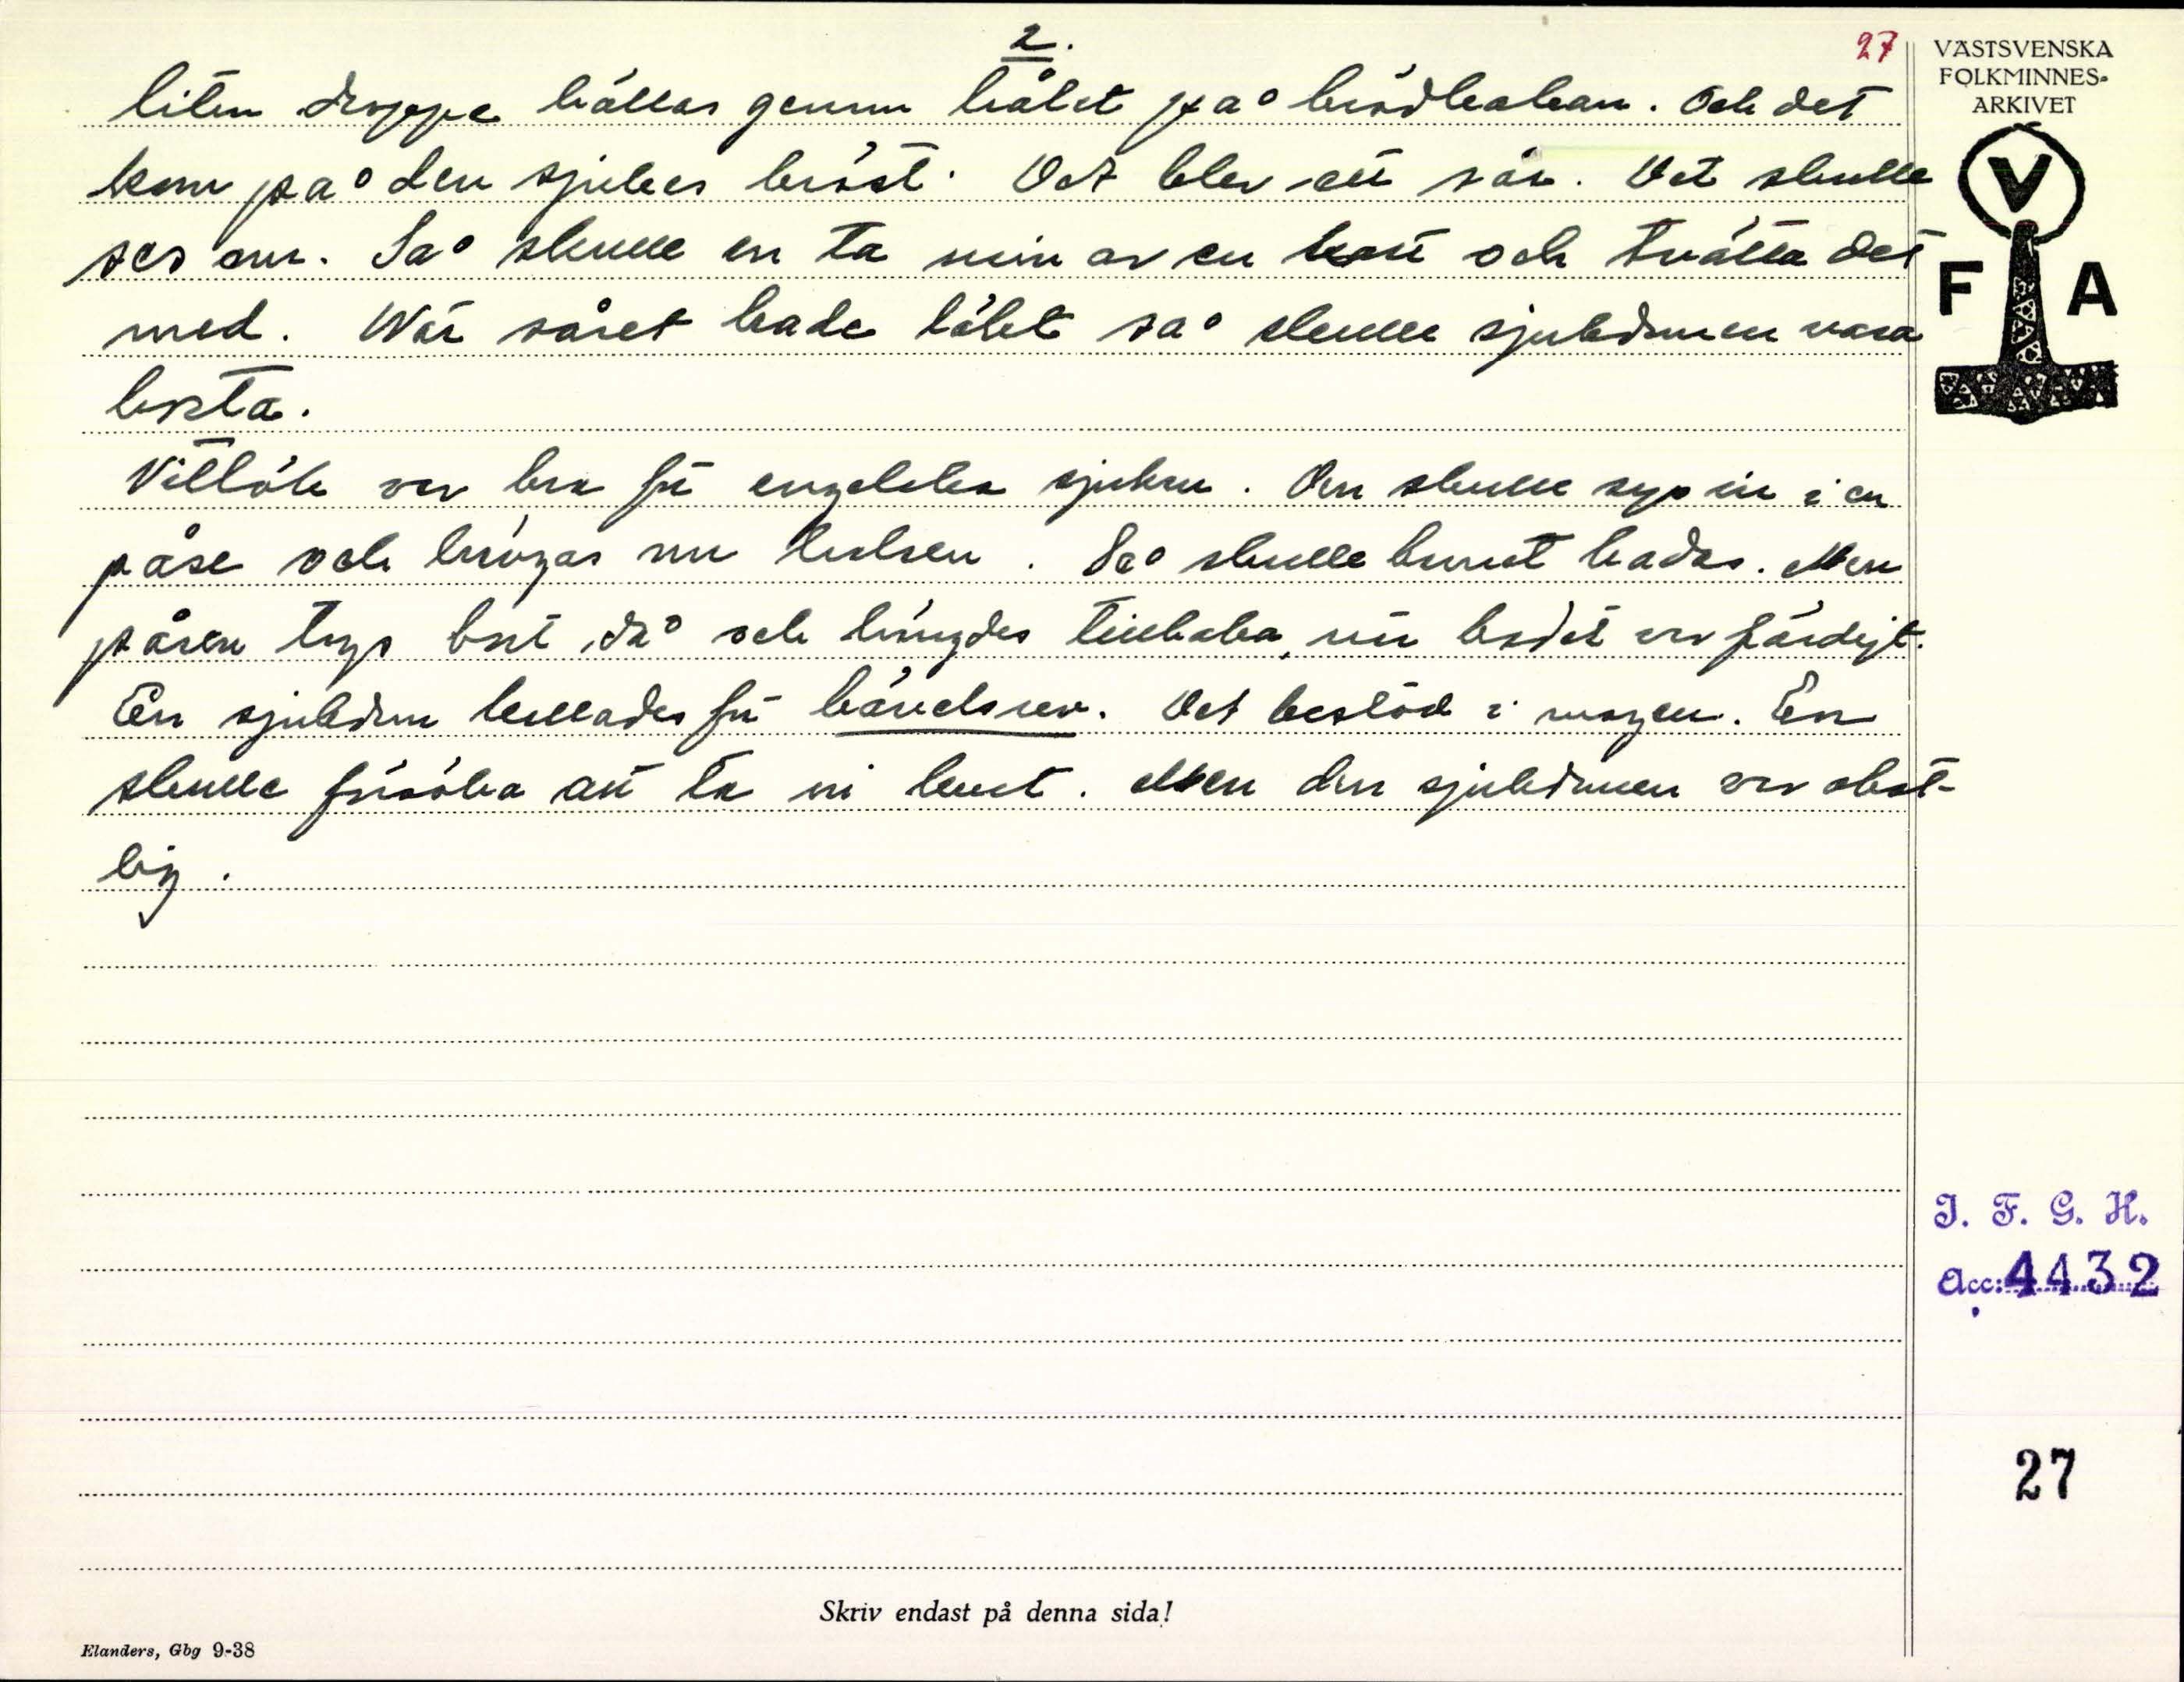 2.
27
VÄSTSVENSKA
FOLKMINNES-
ARKIVET
V
F A
liten droppe hällas genom hålet på brödkakan. Och det
kom på den sjukes bröst. Det blev ett sår. Det skulle
ses om. Så skulle en ta urin av en katt och tvätta det
med. När såret hade läkt så skulle sjukdomen vara
borta.
Vitlök var bra för engelska sjukan. Den skulle sys in i en
påse och hängas om halsen. Så skulle barnet badas. Men
påsen togs bort då och hängdes tillbaka, när badet var färdigt.
En sjukdom kallades för bävelsrev. Det bestod i magen. En
skulle försöka att ta in laxat. Men den sjukdomen var obot-
lig.
I. F. G. H.
Acc: 4432
27
Skriv endast på denna sida!
Elanders, Gbg 9-38